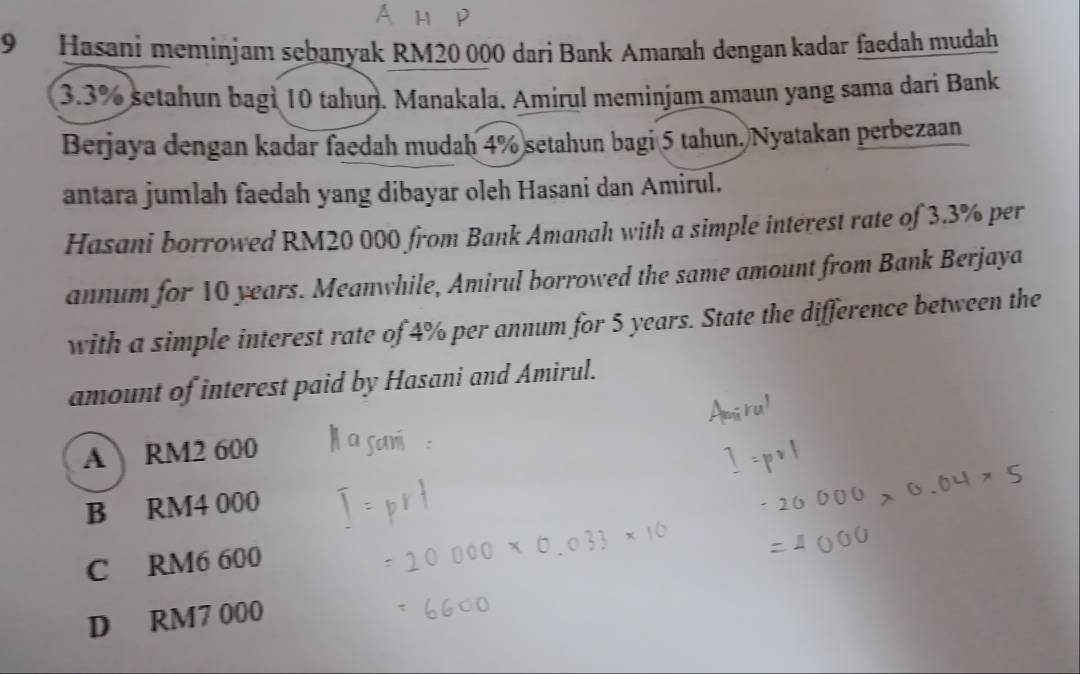 A H P
9 Hasani meminjam sebanyak RM20 000 dari Bank Amanah dengan kadar faedah mudah
3.3% setahun bagi 10 tahun. Manakala, Amirul meminjam amaun yang sama dari Bank
Berjaya dengan kadar faedah mudah 4% setahun bagi 5 tahun. Nyatakan perbezaan
antara jumlah faedah yang dibayar oleh Hasani dan Amirul.
Hasani borrowed RM20 000 from Bank Amanah with a simple interest rate of 3.3% per
annum for 10 years. Meanwhile, Amirul borrowed the same amount from Bank Berjaya
with a simple interest rate of 4% per annum for 5 years. State the difference between the
amount of interest paid by Hasani and Amirul.
A RM2 600
B RM4 000
C RM6 600
D RM7 000
Hasani :
I = prt
= 20 000 × 0.033 × 10
= 6600
Amirul
I = prt
= 20 000 × 0.04 × 5
= 4000